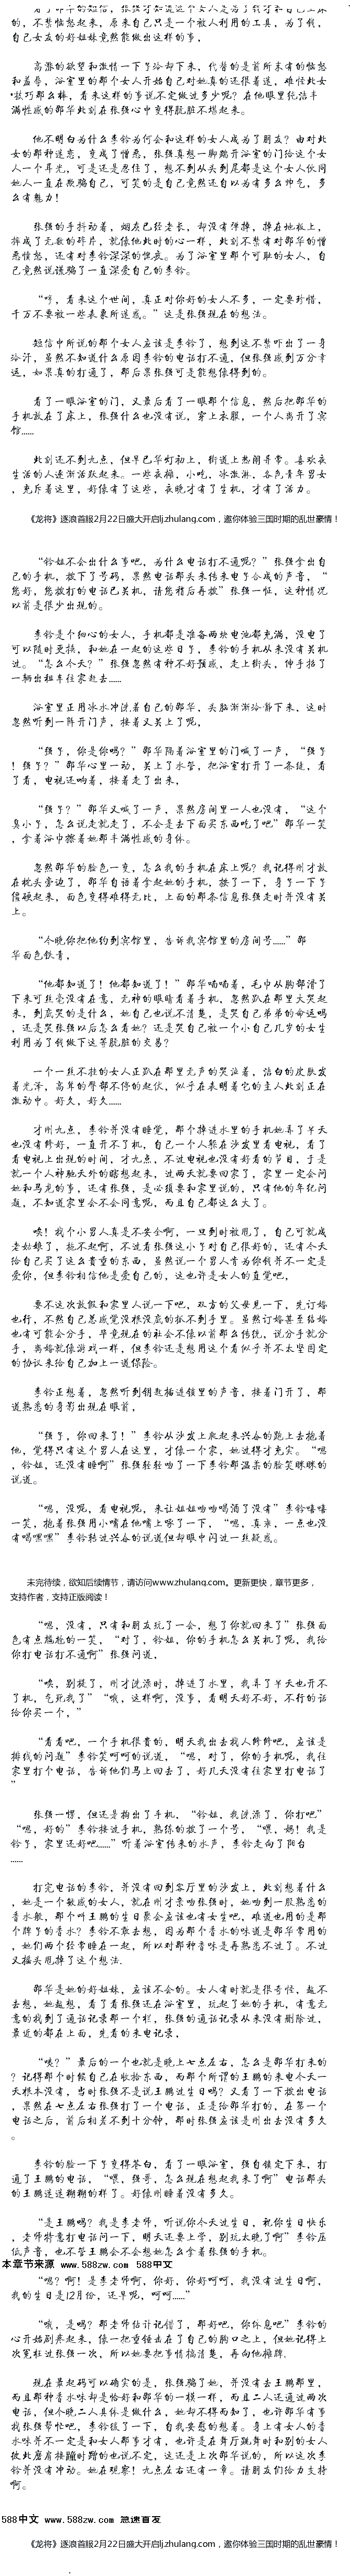 高涨的欲望和激情一下子冷却下来，代替的是前所未有的恼怒
和羞辱，浴室里的那个女人开始自己对她真的还很着迷，难怪此女
满性感的邵华此刻在张强心中变得肮脏不堪起来。
他不明白为什么李铃为何会和这样的女人成为了朋友？由对此
女的那种迷恋，变成了憎恶，张强真想一脚踹开浴室的门给这个女
人一个耳光，可是还是忍住了，想不到从头到尾都是这个女人伙同
她人一直在欺骗自己，可笑的是自己竟然还自以为有多么帅气，多
么有魅力！
张强的手抖动着，烟灰已经老长，却没有弹掉，掉在地板上，
摔成了无数的碎片，就像他此时的心一样，此刻不禁有对邵华的憎
恶愤怒，还有对李铃深深的愧疚。为了浴室里那个可耻的女人，自
己竟然说谎骗了一直深爱自己的李铃。
“哼，看来这个世间，真正对你好的女人不多，一定要珍惜，
千万不要被一些表象所迷惑。”这是张强现在的想法。
短信中所说的那个女人应该是李铃了，想到这不禁吓出了一身
冷汗，虽然不知道什么原因李铃的电话打不通，但张强感到万分幸
运，如果真的打通了，那后果张强可是能想像得到的。
看了一眼浴室的门，又最后看了一眼那个信息，然后把邵华的
手机放在了床上，张强什么也没有说，穿上衣服，一个人离开了宾
馆……
此刻还不到九点，但早已华灯初上，街道上热闹非常。喜欢夜
生活的人逐渐活跃起来。一些夜摊，小吃，冰激淋，各色青年男女
，充斥着这里，好像有了这些，夜晚才有了生机，才有了活力。
《龙将》逐浪首服2月22日盛大开启lj.zhulang.com，邀你体验三国时期的乱世豪情！
“铃姐不会出什么事吧，为什么电话打不通呢？”张强拿出自
己的手机，拨下了号码，果然电话那头来传来电子合成的声音，“
您好，您拨打的电话已关机，请您稍后再拨”张强一怔，这种情况
以前是很少出现的。
李铃是个细心的女人，手机都是准备两块电池都充满，没电了
可以随时更换，和她在一起的这些日子，李铃的手机从来没有关机
过。“怎么今天？”张强忽然有种不好预感，走上街头，伸手招了
一辆出租车往家赶去……
浴室里正用冰水冲洗着自己的邵华，头脑渐渐冷静下来，这时
忽然听到一阵开门声，接着又关上了呢，
“强子，你是你吗？”邵华隔着浴室里的门喊了一声，“强子
！强子？”邵华心里一动，关上了水管，把浴室打开了一条缝，看
了看，电视还响着，接着走了出来，
“强子？”邵华又喊了一声，果然房间里一人也没有，“这个
臭小子，怎么说走就走了，不会是去下面买东西吃了吧”邵华一笑
，拿着浴巾擦着她那丰满性感的身体。
忽然邵华的脸色一变，怎么我的手机在床上呢？我记得刚才放
在枕头旁边了，邵华自语着拿起她的手机，按了一下，身子一下子
僵硬起来，面色变得难得无比，上面的那条信息张强走时并没有关
上。
“今晚你把他约到宾馆里，告诉我宾馆里的房间号……”邵
华面色铁青，
“他都知道了！他都知道了！”邵华喃喃着，毛巾从胸部滑了
下来可丝毫没有在意，无神的眼睛看着手机，忽然趴在那里大哭起
来，到底哭的是什么，她自己也说不清楚，是哭自己弟弟的命运吗
，还是哭张强以后怎么看她？还是哭自己被一个小自己几岁的女生
利用为了钱做下这等肮脏的交易？
一个一丝不挂的女人正趴在那里无声的哭泣着，洁白的皮肤发
着光泽，高耸的臀部不停的起伏，似乎在表明着它的主人此刻正在
激动中。好久，好久……
才刚九点，李铃并没有睡觉，那个掉进水里的手机她弄了半天
也没有修好，一直开不了机，自己一个人躲在沙发里看电视，看了
看电视上出现的时间，才九点，不过电视也没有好看的节目，于是
就一个人神驰天外的瞎想起来，过两天就要回家了，家里一定会问
她和马龙的事，还有张强，是必须要和家里说的，只有他的年纪问
题，不知道家里会不会同意呢，而且自己都这么大了。
唉！找个小男人真是不安全啊，一旦到时被甩了，自己可就成
老姑娘了，拖不起啊，不过看张强这小子对自己很好的，还有今天
给自己买了这么贵重的东西，虽然说一个男人肯为你钱并不一定是
爱你，但李铃相信他是爱自己的，这也许是女人的直觉吧，
要不这次放假和家里人说一下吧，双方的父母见一下，先订婚
也行，不然自己总感觉没根没底的抓不到手里。虽然订婚甚至结婚
也有可能会分手，毕竟现在的社会不像以前那么传统，说分手就分
手，离婚就像游戏一样，但李铃还是想用这个看似乎并不太坚固定
的协议来给自己加上一道保险。
李铃正想着，忽然听到钥匙插进锁里的声音，接着门开了，那
道熟悉的身影出现在眼前，
“强子，你回来了！”李铃从沙发上跃起来兴奋的跑上去抱着
他，觉得只有这个男人在这里，才像一个家，她过得才充实。“嗯
，铃姐，还没有睡啊”张强轻轻吻了一下李铃那温柔的脸笑眯眯的
说道。
“嗯，没呢，看电视呢，来让姐姐吻吻喝酒了没有”李铃嘻嘻
一笑，抱着张强用小嘴在他嘴上啄了一下，“嗯，真乖，一点也没
有喝嘿嘿”李铃转过兴奋的说道但却眼中闪过一丝疑惑。
未完待续，欲知后续情节，请访问www.zhulang.com。更新更快，章节更多，
支持作者，支持正版阅读！
“嗯，没有，只有和朋友玩了一会，想了你就回来了”张强面
色有点尴尬的一笑，“对了，铃姐，你的手机怎么关机了呢，我给
你打电话打不通啊”张强问道，
“唉，别提了，刚才洗澡时，掉进了水里，我弄了半天也开不
了机，气死我了”“哦，这样啊，没事，看明天好不好，不行的话
给你买一个，”
“看看吧，一个手机很贵的，明天我出去找人修修吧，应该是
排线的问题”李铃笑呵呵的说道，“嗯，对了，你的手机呢，我往
家里打个电话，告诉他们马上回去了，好几天没有往家里打电话了
”
张强一愣，但还是掏出了手机，“铃姐，我洗澡了，你打吧”
“嗯，好的”李铃接过手机，熟练的拨了一个号，“喂，妈！我是
铃子，家里还好吧……”听着浴室传来的水声，李铃走向了阳台
……
打完电话的李铃，并没有回到客厅里的沙发上，此刻想着什么
，她是一个敏感的女人，就在刚才亲吻张强时，她吻到一股熟悉的
香水般，那个叫王鹏的生日聚会应该也有女生吧，难道也用的是那
个牌子的香水？李铃不靠去想，因为那个香水的味道是邵华常用的
，她们两个经常睡在一起，所以对那种香味是再熟悉不过了。不过
又摇头甩掉了这个想法.
邵华是她的好姐妹，应该不会的。女人有时就是很奇怪，越不
去想，她越想，看了看张强还在浴室里，玩起了她的手机，有意无
意的找到了通话记录那一个栏，张强的通话记录从来没有删除过，
最近的都在上面，先看的来电记录，
“咦？”最后的一个也就是晚上七点左右，怎么是邵华打来的
？记得那个时候自己在收拾东西，而那个所谓的王鹏的来电今天一
天根本没有，当时张强不是说王鹏过生日吗？又看了一下拨出电话
，果然在七点左右张强打了一个电话，正是给邵华打的，在第一个
电话之后，首后相差不到十分钟，那时张强应该是刚出去没有多久
。
李铃的脸一下子变得苍白，看了一眼浴室，强自镇定下来，打
通了王鹏的电话，“喂，强哥，怎么现在想起我来了啊”电话那头
的王鹏迷迷糊糊的样了。好像刚睡着没有多久。
“是王鹏吗？我是李老师，听说你今天过生日，祝你生日快乐
，老师特意打电话问一下，明天还要上学，别玩太晚了啊”李铃压
低声音，也不管王鹏会不会想她怎么拿着张强的手机。
本章节来源 www.588zw.com 588中文
“嗯？啊！是李老师啊，你好，你好呵呵，我没有过生日啊，
我的生日是12月份，还早呢，呵呵……”
“哦，是吗？那老师估计记错了，那好吧，你休息吧”李铃的
心开始剧奔起来，像一把重锤击在了自己的胸口之上，但她记得上
次冤枉过张强一次，所以她要把事情搞清楚，再向他摊牌.
现在最起码可以确实的是，张强骗了她，并没有去王鹏那里，
而且那种香水味却是恰好和邵华的一模一样，而且二人还通过两次
电话，但今晚二人具体是做什么，她却不得而知了，也许邵华有事
找张强帮忙吧，李铃找了一下，自我安慰的想着。身上有女人的香
水味并不一定是和女人那事才有，也许是在身子跳舞时和别的女人
彼此磨肩接蹱时蹭的也说不定，这还是上次邵华说的，所以这次李
铃并没有冲动。她在观察！九点左右还有一章。请朋友们给力支持
啊。
588中文 www.588zw.com 急速首发
《龙将》逐浪首服2月22日盛大开启lj.zhulang.com，邀你体验三国时期的乱世豪情！